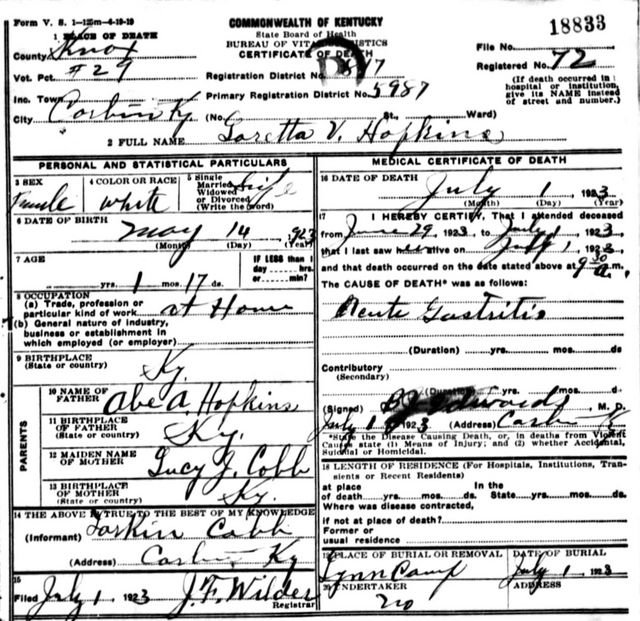 Form V. S. 1-125m-4-19-19
COMMONWEALTH OF KENTUCKY
State Board of Health
BUREAU OF VITAL STATISTICS
CERTIFICATE OF DEATH
18833
1 PLACE OF DEATH
County Knox
File No.
Vot. Pct. #29
Registration District No.
Registered No. 72
Inc. Town
Primary Registration District No. 5987
(If death occurred in hospital or institution, give its NAME instead of street and number.)
City Corbin Ky (No. St., Ward)
2 FULL NAME Goretta V. Hopkins
PERSONAL AND STATISTICAL PARTICULARS
3 SEX Female
4 COLOR OR RACE White
5 Single Married Widowed or Divorced (Write the word) Single
6 DATE OF BIRTH May 14, 1923
(Month) (Day) (Year)
7 AGE yrs. 1 mos. 17 ds.
IF LESS than 1 day----hrs. or----min.?
8 OCCUPATION
(a) Trade, profession or particular kind of work at Home
(b) General nature of industry, business or establishment in which employed (or employer)
9 BIRTHPLACE (State or country) Ky.
PARENTS
10 NAME OF FATHER Abe A. Hopkins
11 BIRTHPLACE OF FATHER (State or country) Ky.
12 MAIDEN NAME OF MOTHER Lucy J. Cobb
13 BIRTHPLACE OF MOTHER (State or country) Ky.
14 THE ABOVE IS TRUE TO THE BEST OF MY KNOWLEDGE
(Informant) Larkin Cobb
(Address) Corbin Ky
15
Filed July 1, 1923 J. F. Wilder
Registrar
MEDICAL CERTIFICATE OF DEATH
16 DATE OF DEATH July 1, 1923
(Month) (Day) (Year)
17 I HEREBY CERTIFY, That I attended deceased
from June 29, 1923 to July 1, 1923
that I last saw her alive on July 1, 1923
and that death occurred on the date stated above at 9 30 a.m.
The CAUSE OF DEATH* was as follows:
Acute Gastritis
(Duration) yrs. mos. ds
Contributory
(Secondary)
(Duration) yrs. mos. ds.
(Signed) Edwards, M. D.
July 1 1923 (Address) Corbin Ky
*State the Disease Causing Death, or, in deaths from Violent Causes state (1) Means of Injury; and (2) whether Accidental, Suicidal or Homicidal.
18 LENGTH OF RESIDENCE (For Hospitals, Institutions, Transients or Recent Residents)
at place of death yrs. mos. ds. In the State yrs. mos. ds.
Where was disease contracted,
if not at place of death?
Former or usual residence
19 PLACE OF BURIAL OR REMOVAL Lynn Camp
DATE OF BURIAL July 1 1923
20 UNDERTAKER no
ADDRESS